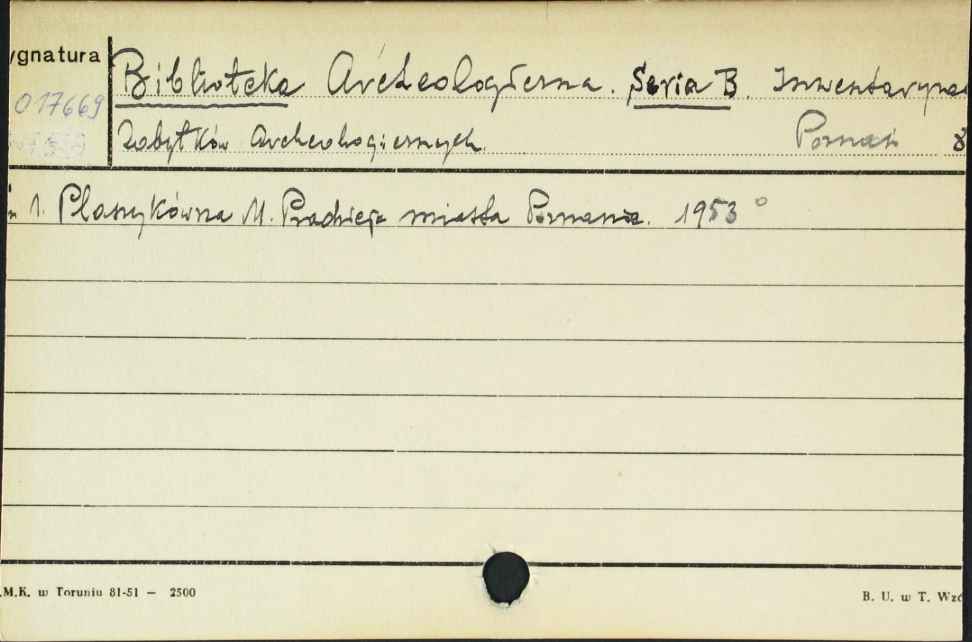 ygnatura
Biblioteka Archeologiczna. Seria B. Inwentaryza
017669
Zabytków Archeologicznych. Poznań 8
1. Plaszykówna M. Pradzieje miasta Poznania. 1953
.M.K. w Toruniu 81-51 — 2500
B. U. w T. Wzó